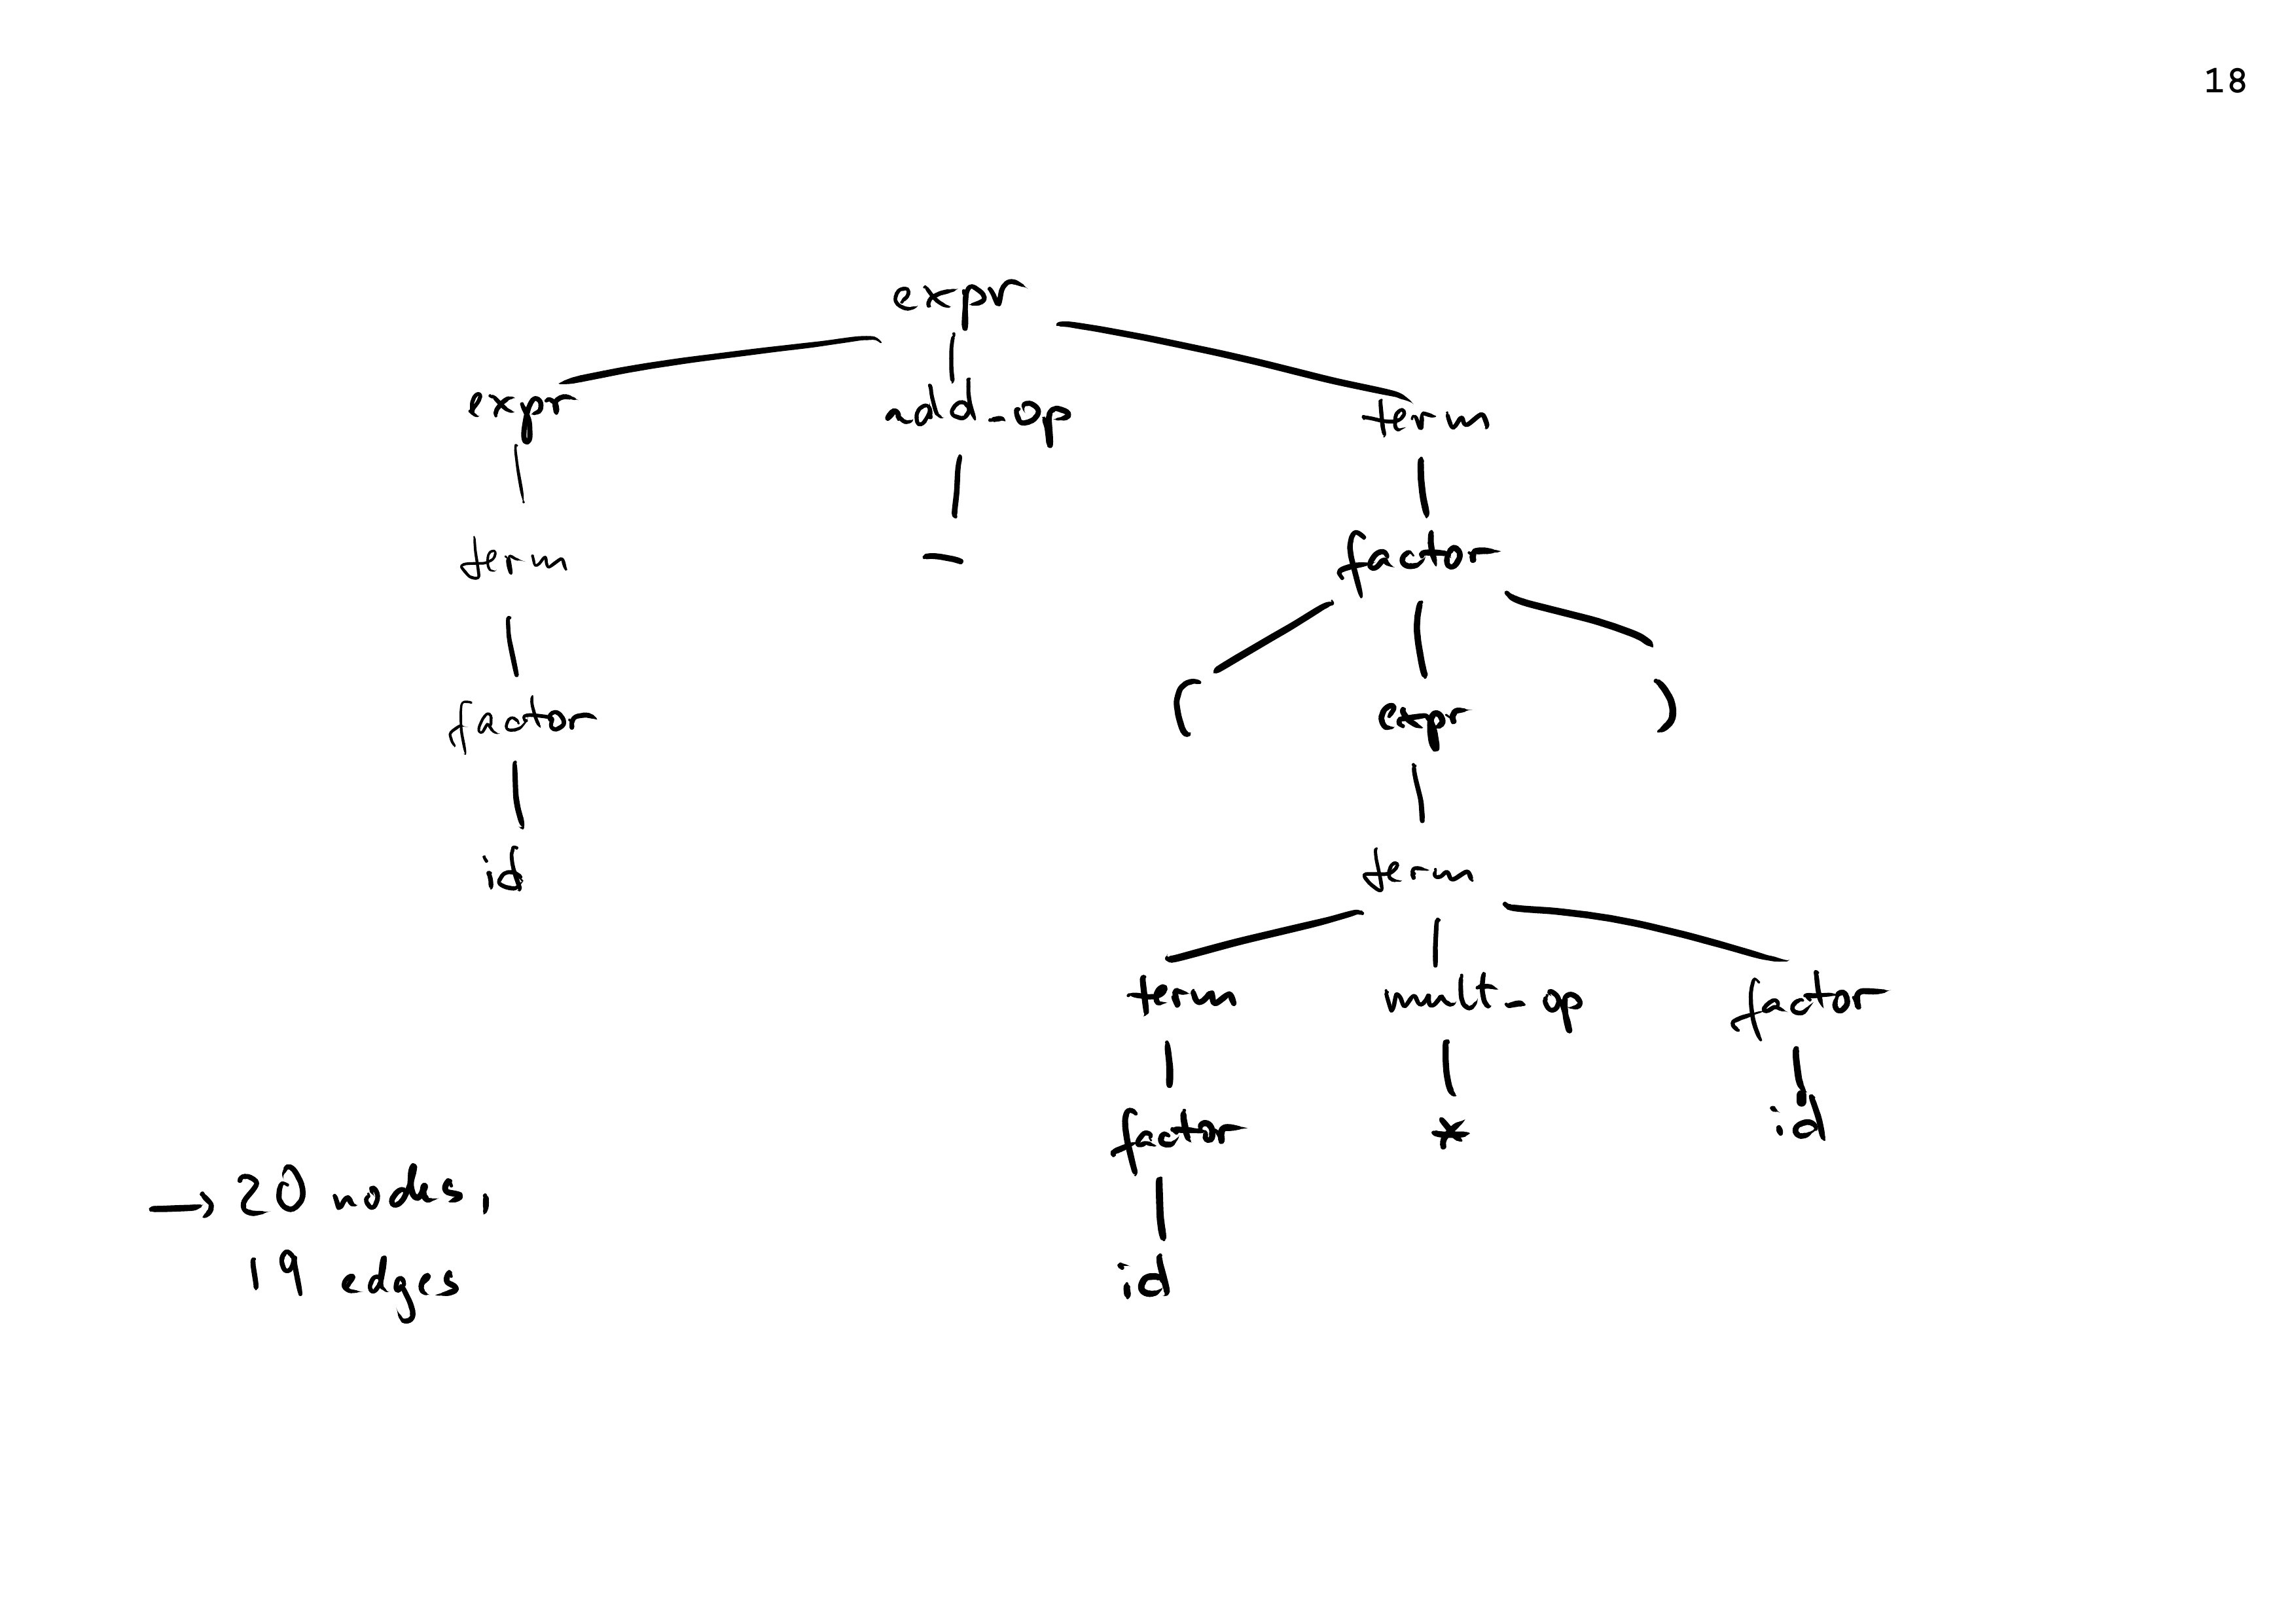 18
expr
expr add_op term
term - factor
factor ( expr )
id term
term mult_op factor
factor * id
→ 20 nodes,
19 edges id